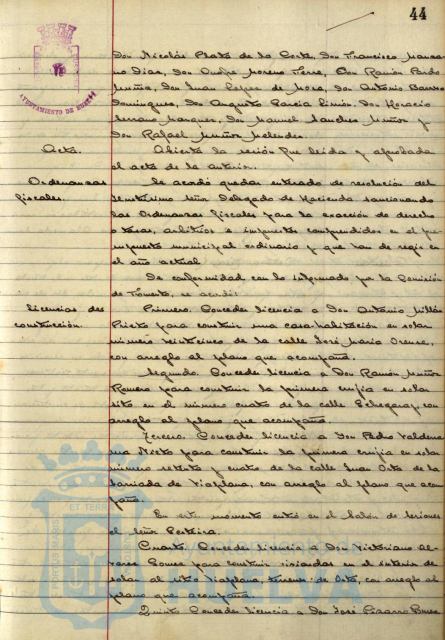 44
AYUNTAMIENTO DE HUELVA
Don Nicolás Plata de la Corte, Don Francisco
Dias, Don Andres Moreno Don Ramón Pardo
Muñiz, Don Juan Lopez de Mora, Don Antonio Barro
Dominguez, Don Augusto Garcia Don Horacio
Serrano Marquez, Don Manuel Sanchez Muñoz y
Don Rafael Muñoz
Acta. Abierta la sesión fue leida y aprobada
el acta de la anterior.
Ordenanzas Se acordó quedar enterado de resolución del
fiscales. Ilustrísimo Señor Delegado de Hacienda sancionando
las Ordenanzas fiscales para la exacción de derechos
o tasas, arbitrios e impuestos comprendidos en el pre-
supuesto municipal ordinario y que han de regir en
el año actual
De conformidad con lo informado por la Comisión
de Fomento, se acordó:
Licencias de Primero. Conceder licencia a Don Antonio Millán
construcción. Prieto para construir una casa-habitación en solar
número veinticinco de la calle José Maria Orense,
con arreglo al plano que acompaña.
Segundo. Conceder licencia a Don Ramón Muñoz
Romero para construir la primera crujia en solar
sito en el número cuatro de la calle Echegaray, con
arreglo al plano que acompaña.
Tercero. Conceder licencia a Don Pedro Valderra-
ma Nieto para construir la primera crujia en solar
número setenta y cuatro de la calle Juan Orta de la
barriada de Viaplana, con arreglo al plano que acom-
paña.
En este momento entró en el Salón de Sesiones
el Señor
Cuarto. Conceder licencia a Don Victoriano Al-
varez Gomez para construir viviendas en el interior de
solar al sitio Viaplana, terrenos de Orta, con arreglo al
plano que acompaña.
Quinto. Conceder licencia a Don José Pizarro
ET TERR
Ayuntamiento de
HUELVA